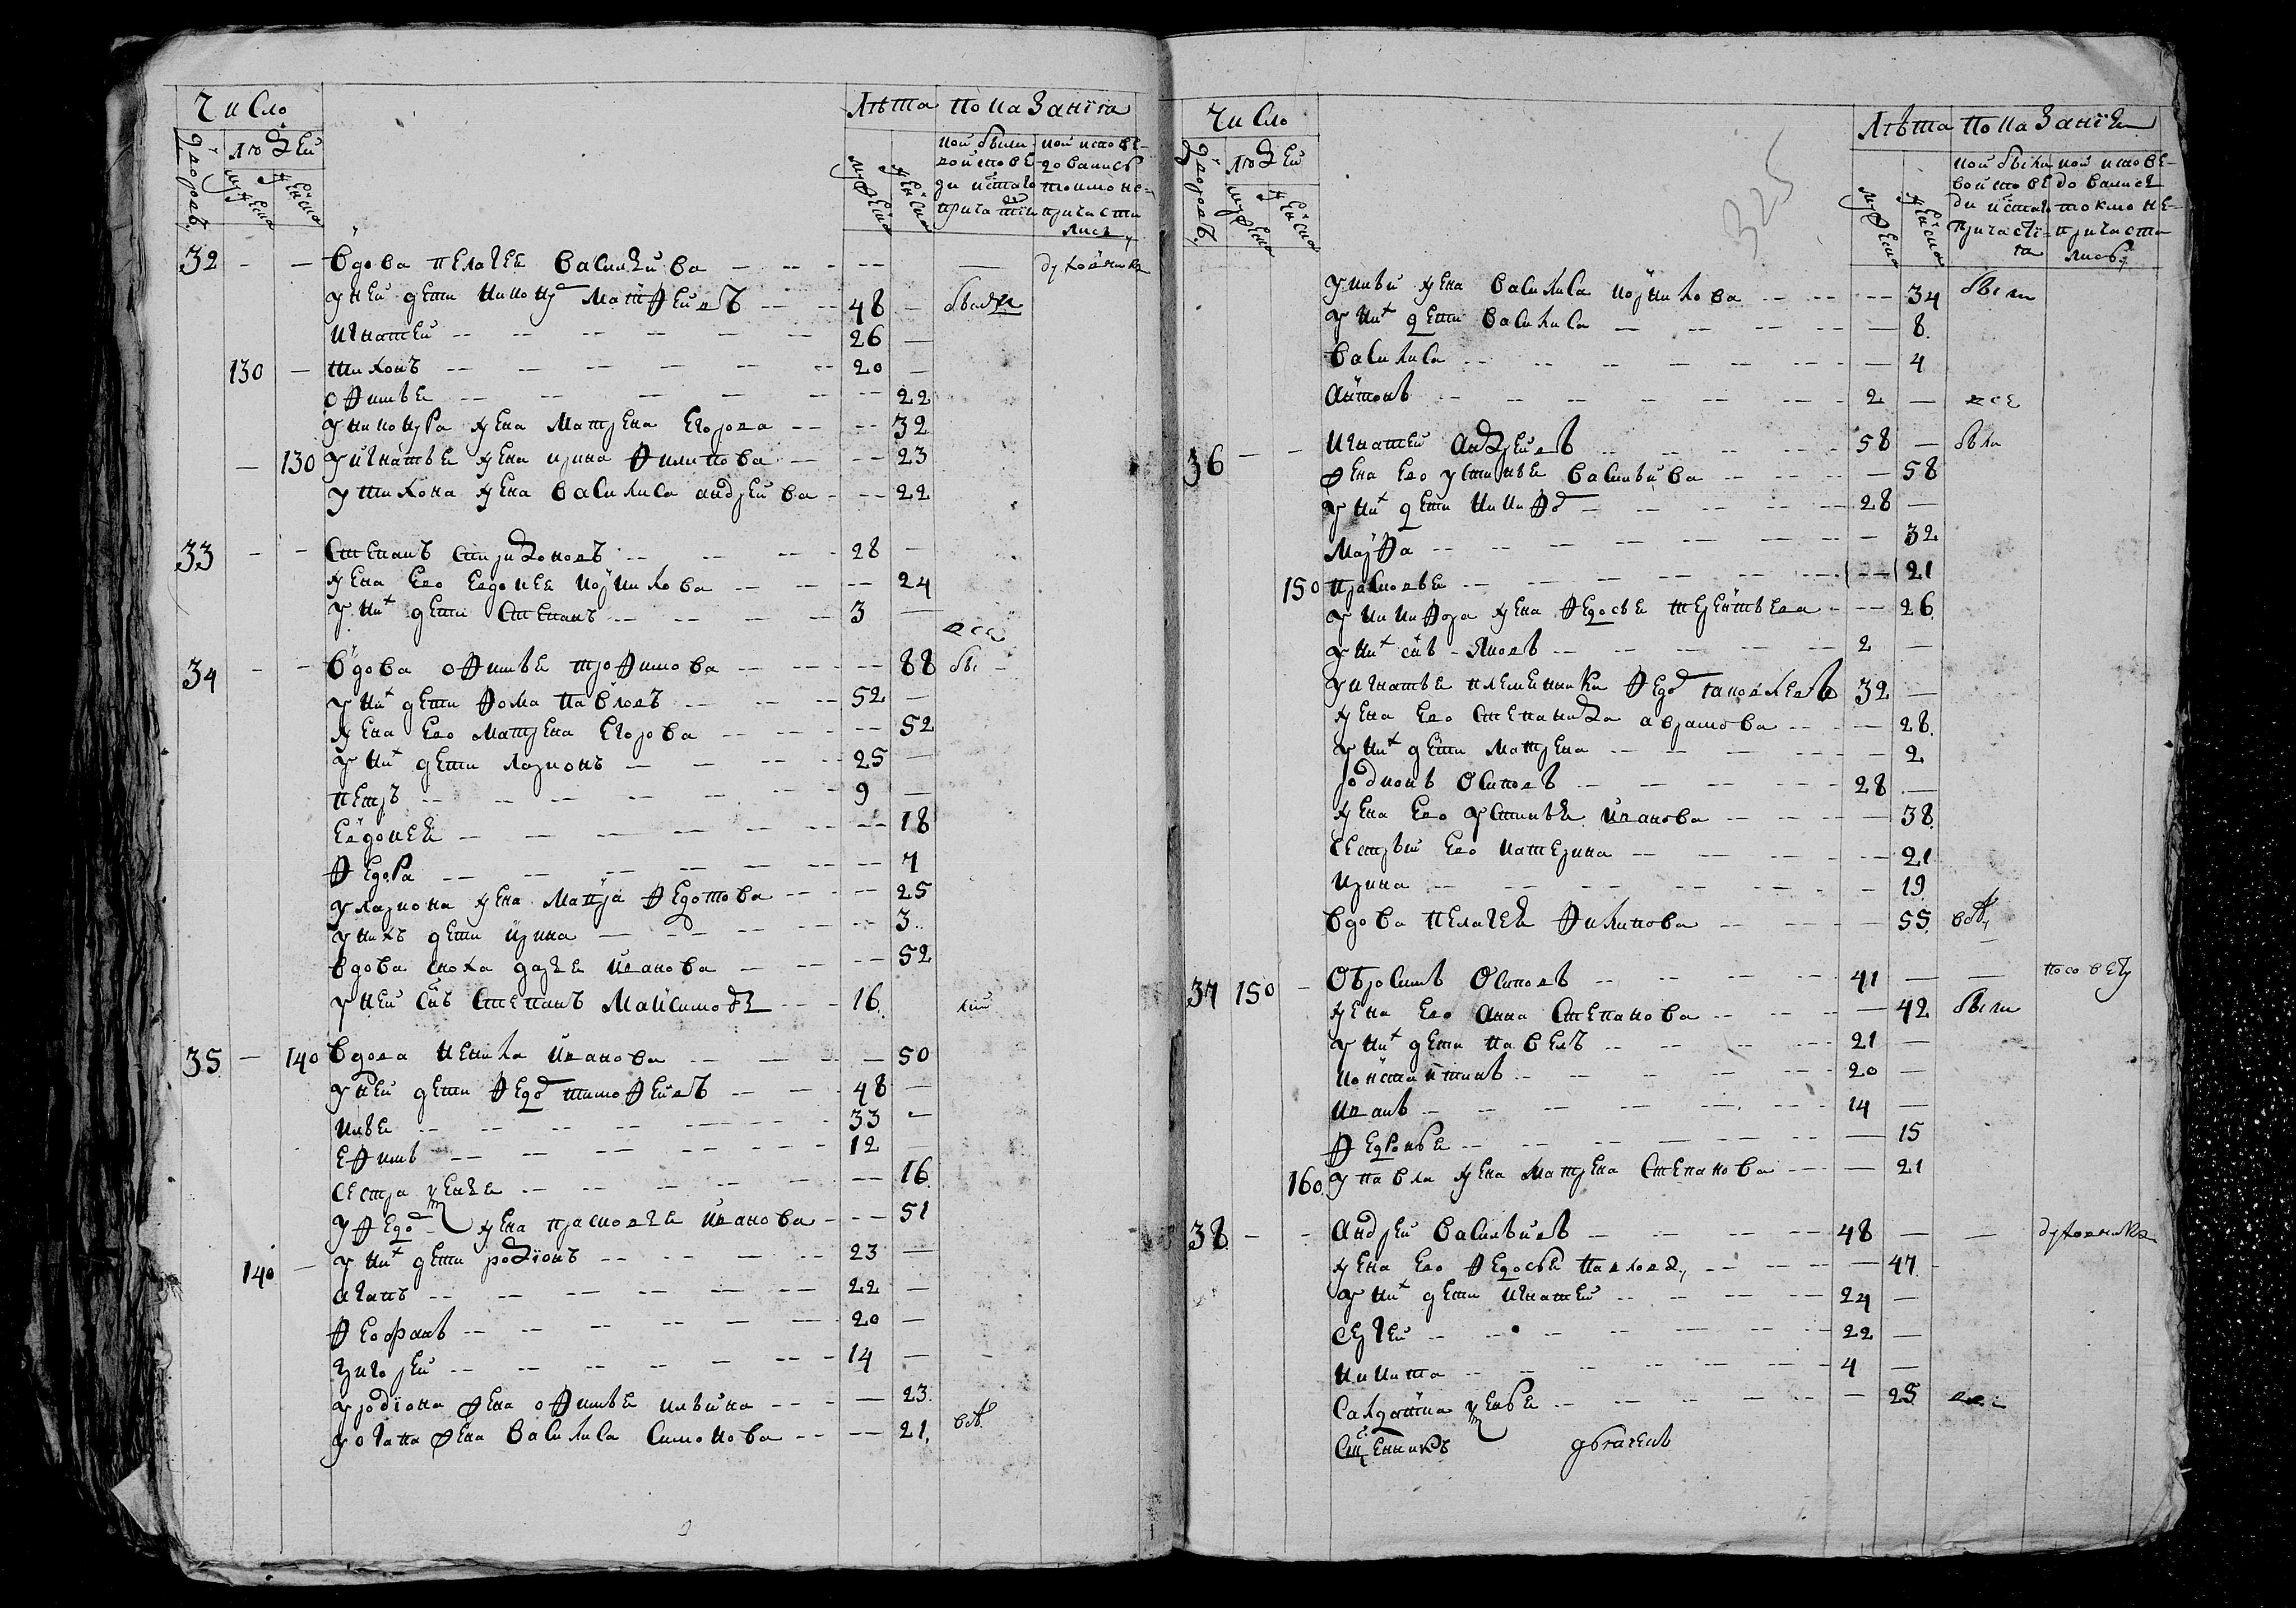 Число
Лѣта
показанiя
дворовъ
людей
мужеска
женска
мужеска
женска
кои были
во исповѣ
ди и с̃таго
причастiя
кои исповѣ-
довались
токмо не-
прича сти
лись,
32 - - вдова пелагея василиева - - - -
у неи дети никону матфеивъ - - 48 - были
игнатеи - - 26 -
130 - тихонъ - - 20 -
офимья - - 22
у никонура жена матрена егорова - - 32
- 130 у игнатья жена ирина филипова - - 23
у тихона жена василиса андреива - - 22
33 - - степанъ спиридоновъ - - 28 -
жена ево евдокея - - 24
у них дети степанъ - - 3 -
всѣ
34 - - вдова офимья трофимова - - 88 бы -
у них дети фома павловъ - - 52 -
жена ево матрена егорова - - 52
у них дети ларионъ - - 25 -
петръ - - 9 -
евдокея - - 18
федора - - 7
у лариона жена федотова - - 25
у нихъ дети ирина - - 3
вдова сноха дарья иванова - - 52
у неи с̃нъ степанъ - - 16
35 - 140 вдова иванова - - 50
у неи дети фед тимофеивъ - - 48 -
илья - - 33 -
ефимъ - - 12 -
сестра - - 16
у фед жена прасковья иванова - - 51
140 - у них дети родiонъ - - 23 -
агапъ - - 22 -
феофанъ - - 20 -
григореи - - 14 -
у родiона жена офимья ильина - - 23
у огапа жена василиса симонова - - 21
325
Число
Лѣта
показанiи
дворовъ
людей
мужеска
женска
мужеска
женска
кои были
во исповѣ
ди и с̃таго
причастi-
я
кои исповѣ-
довались
токмо не-
причасти
лись,
жена василиса - - 34 были
у них дети василиса - - 8
василиса - - 4
антонъ - - 2 - всѣ
36 - - игнатеи андреивъ - - 58 - были
жена ево устинья василиева - - 58
у них дети никифо - - 28 -
марфа - - 32
150 прасковья - - 21
у никифора жена федосья терентьева - - 26
у них с̃нъ яковъ - - 2 -
у игнатья племянники фед яковлевъ 32 -
жена ево степанида аврамова - - 28
у них дети матрена - - 2
родионъ осиповъ - - 28 -
жена ево устинья иванова - - 38
сестры ево катерина - - 21
ирина - - 19
вдова пелагея филипова - - 55
37 150 - обросимъ осиповъ - - 41 - -
жена ево анна степанова - - 42 были
у них дети павелъ - - 21 -
константинъ - - 20 -
иванъ - - 14 -
федосья - - 15
160 у павла жена матрена степанова - - 21
38 - - андреи васильивъ - - 48 - -
жена ево федосья павлова, - - 47
у них дети игнатеи - - 24 -
сергеи - - 22 -
никита - - 4 -
салдатка - - 25